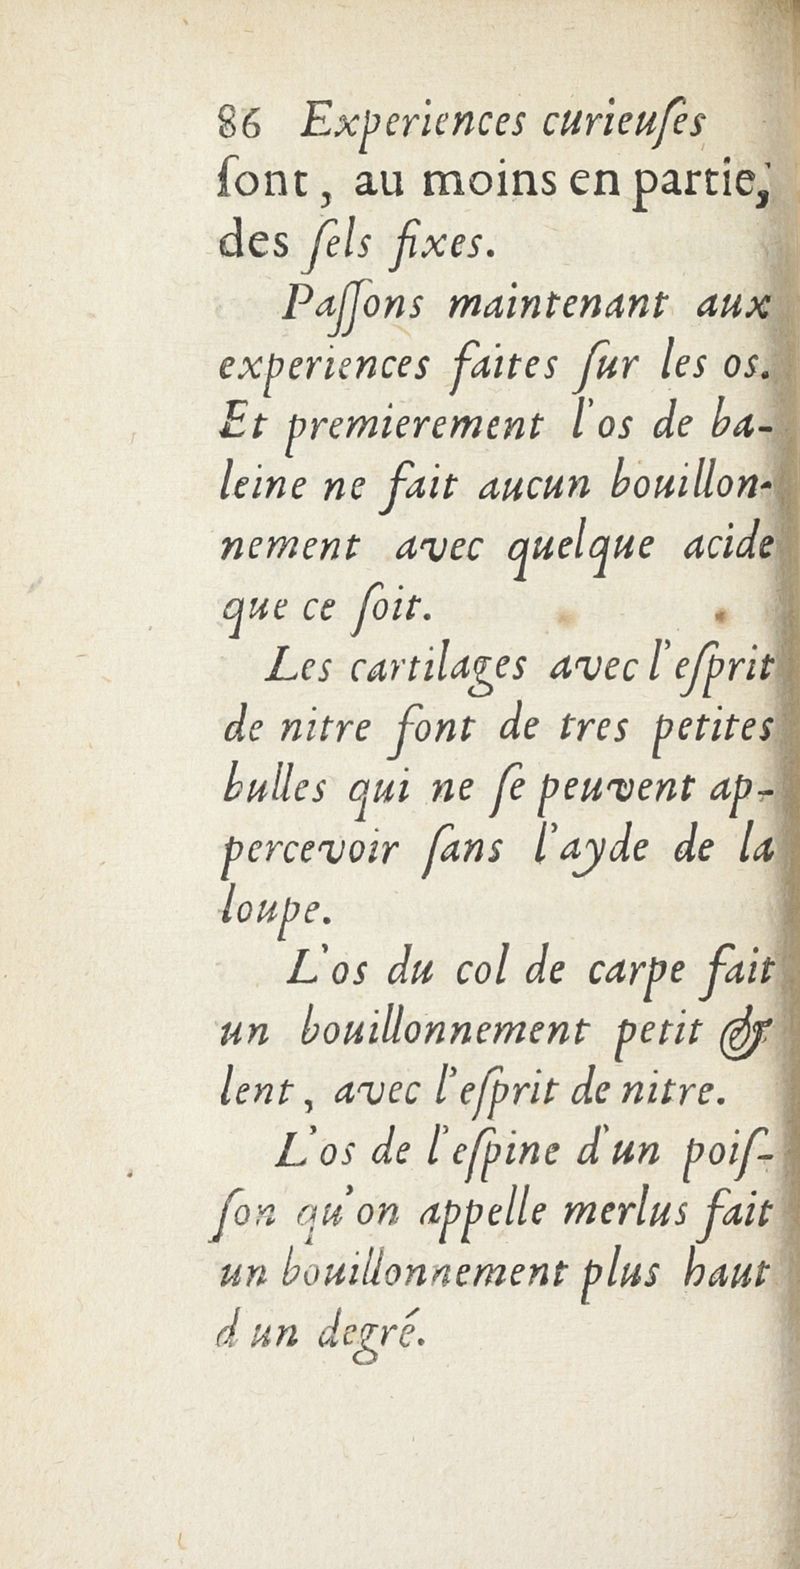 86 Experiences curieuſes
ſont, au moins en partie,
des ſels fixes.
Paſſons maintenant aux
experiences faites ſur les os.
Et premierement l'os de ba-
leine ne fait aucun bouillon-
nement avec quelque acide
que ce ſoit.
Les cartilages avec l'eſprit
de nitre font de tres petites
bulles qui ne ſe peuvent ap-
percevoir ſans l'ayde de la
loupe.
L'os du col de carpe fait
un bouillonnement petit &
lent, avec l'eſprit de nitre.
L'os de l'eſpine d'un poiſ-
ſon qu'on appelle merlus fait
un bouillonnement plus haut
d un degré.